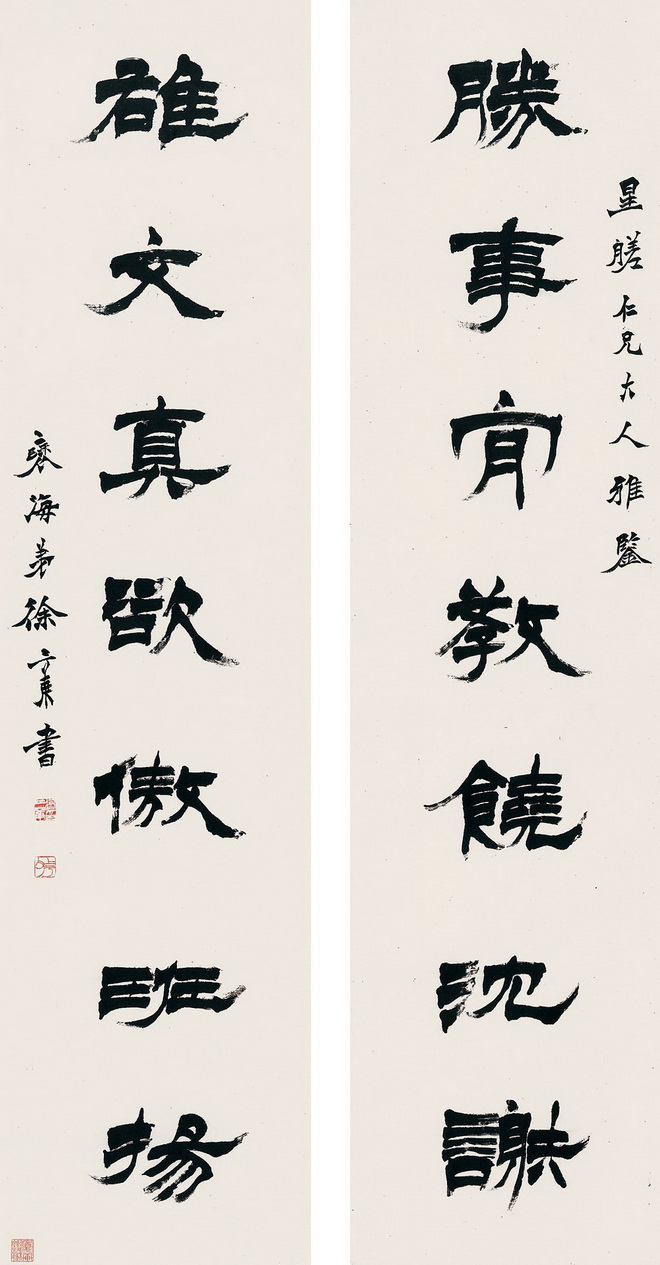 星䑂仁兄大人雅鑒
勝事肎教饒沈謝
雄文真欲傲班揚
褱海弟徐三庚書